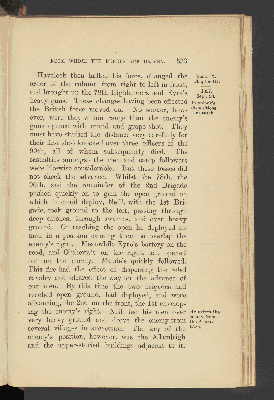 FROM WHICH THE REBELS ARE DRIVEN. 533
Havelock then halted his force, changed the
order of the column from right to left in front,
and brought up the 78th Highlanders and Eyre's
heavy guns. These changes having been effected
the British force moved on. No sooner, however,
were they within range than the enemy's
guns opened with round and grape shot. They
must have studied the distance very carefully, for
their first shots knocked over three officers of the
90th, all of whom subsequently died. The
casualties amongst the men and camp followers
were likewise considerable. But these losses did
not check the advance. Whilst the 78th, the
90th, and the remainder of the 2nd Brigade
pushed quickly on to gain the open ground on
which it could deploy, Neill, with the 1st Brigade,
took ground to the left, passing through
deep ditches, through swamps, and over heavy
ground. On reaching the open he deployed his
men in a position enabling them to overlap the
enemy's right. Meanwhile Eyre's battery on the
road, and Olpherts's on the right, had opened
out on the enemy. Maude's quickly followed.
This fire had the effect of dispersing the rebel
cavalry and clearing the way for the advance of
our men. By this time the two brigades had
reached open ground, had deployed, and were
advancing, the 2nd on the front, the 1st overlapping
the enemy's right. Neill led his men over
very heavy ground and drove the enemy from
several villages in succession. The key of the
enemy's position, however, was the Alambagh
and the upper-storied buildings adjacent to it.